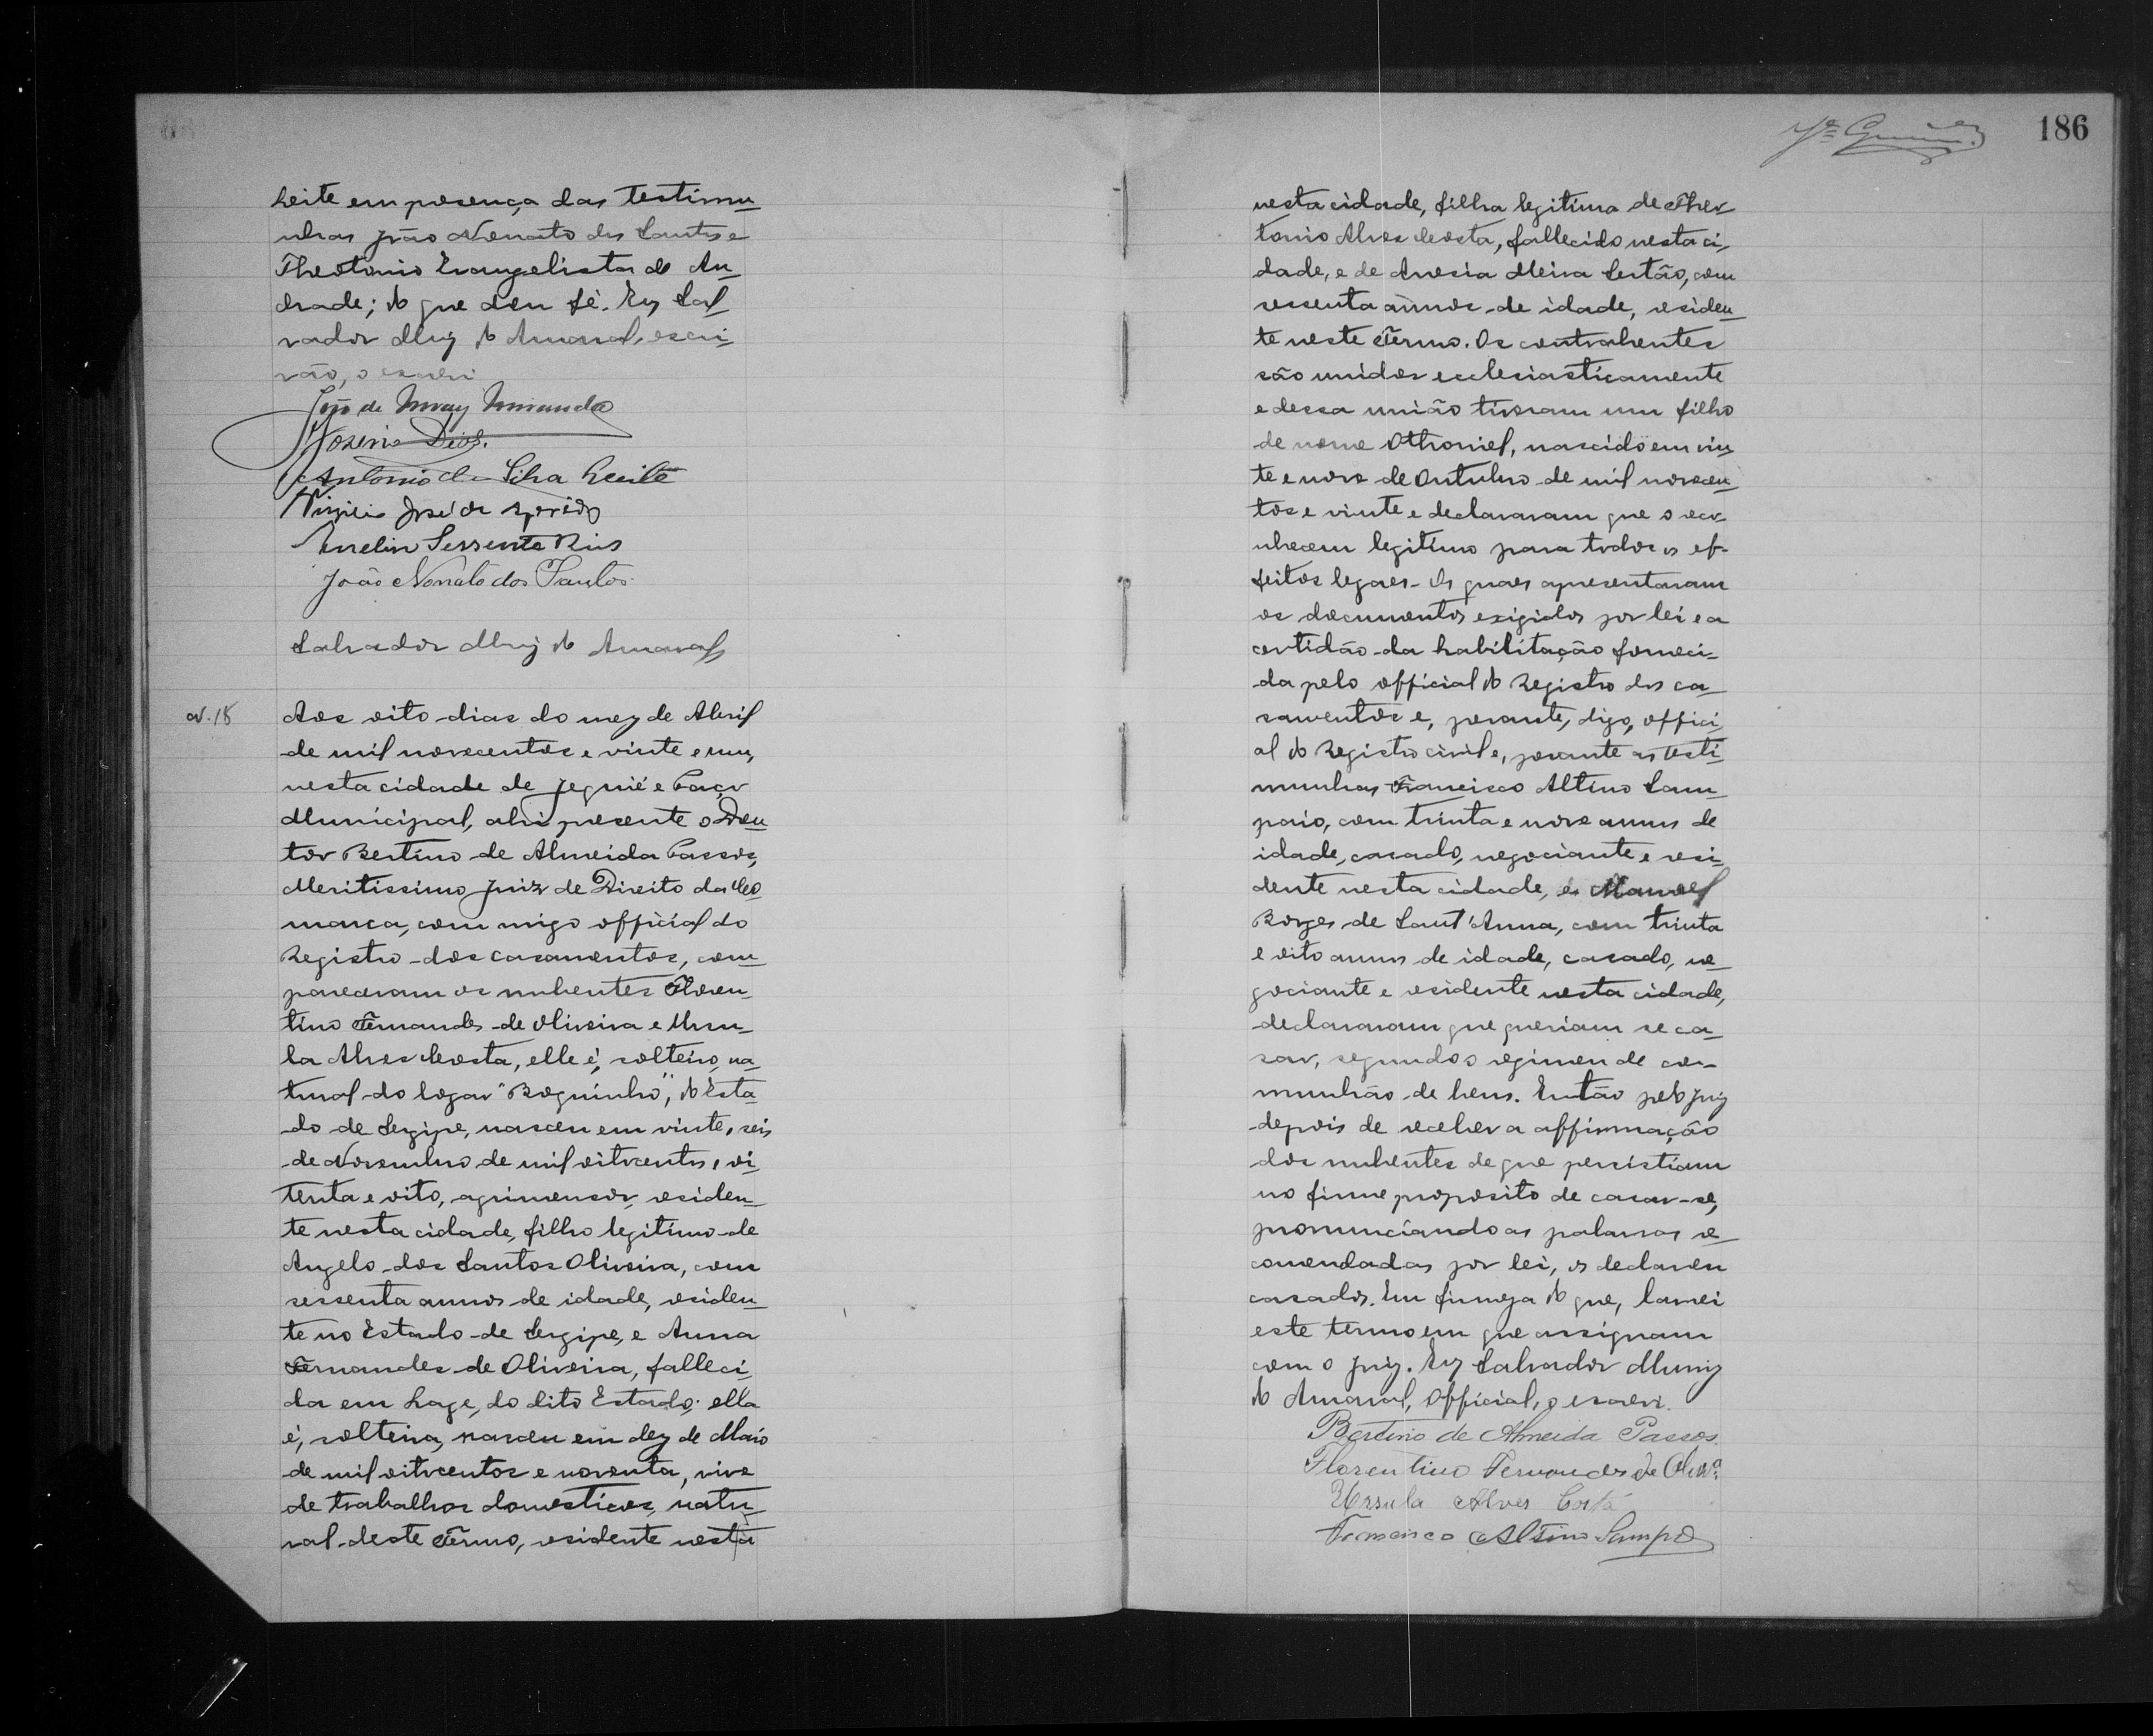 Leite em presença das testimu
nhas João Nonato dos Santos e
Theotonio Evangelista de An
drade; do que dou fé. Eu Sal
vador Muiz do Amaral, escri
vão, o escrevi
João de Miranda
Antonio da Silva Leite
Virginio José de
João Nonato dos Santos
Salvador Muiz do Amaral
N. 18
Aos oito dias do mez de Abril
de mil novecentos e vinte e um,
nesta cidade de Jequié e Paço
Municipal, ahi presente o Dou
tor Bertino de Almeida Passos,
Meritissimo Juiz de Direito da Co
marca, com migo official do
Registro dos casamentos, com
pareceram os nubentes Floren
tino Fernandes de Oliveira e Ursu
la Alves Costa, elle é, solteiro, na
tural do logar "Boquinho", do Esta
do de Sergipe, nasceu em vinte, seis
de Novembro de mil oitocentos, oi
tenta e oito, agrimensor, residen
te nesta cidade, filho legitimo de
Angelo dos Santos Oliveira, com
sessenta annos de idade, residen
te no Estado de Sergipe, e Anna
Fernandes de Oliveira, falleci
da em Lage, do dito Estado; ella
é, solteira, nasceu em dez de Maio
de mil oitocentos e noventa, vive
de trabalhos domesticos, natu
ral deste Termo, residente nesta
186
nesta cidade, filha legitima de Theo
tonio Alves Costa, fallecido nesta ci
dade, e de Anesia Meira Sertão, com
sessenta annos de idade, residen
te neste Termo. Os contrahentes
são unidos ecclesiasticamente
e dessa união tiveram um filho
de nome Othoniel, nascido em vin
te e nove de Outubro de mil novecen
tos e vinte e declararam que o reco
nhecem legitimo para todos os ef-
feitos legaes. Os quaes apresentaram
os documentos exigidos por lei e a
certidão da habilitação forneci
da pelo official do Registro dos ca
samentos e, perante, digo, offici
al do Registro civil e, perante as testi
munhas Francisco Altino Sam
paio, com trinta e nove annos de
idade, casado, negociante e resi
dente nesta cidade, e Manoel
Borges de Sant'Anna, com trinta
e oito annos de idade, casado, ne
gociante e residente nesta cidade,
declararam que queriam se ca
sar, segundo o regimen de com
munhão de bens. Então pelo Juiz
depois de receber a affirmação
dos nubentes de que persistiam
no firme proposito de casar-se,
pronunciando as palavras re
comendadas por lei, os declarou
casados. Em firmeza do que, lavrei
este termo em que assignam
com o Juiz. Eu Salvador Muniz
do Amaral, Official, o escrevi.
Bertino de Almeida Passos.
Florentino Fernandes de Olivra
Ursula Alves Costa
Francisco Altino Sampo